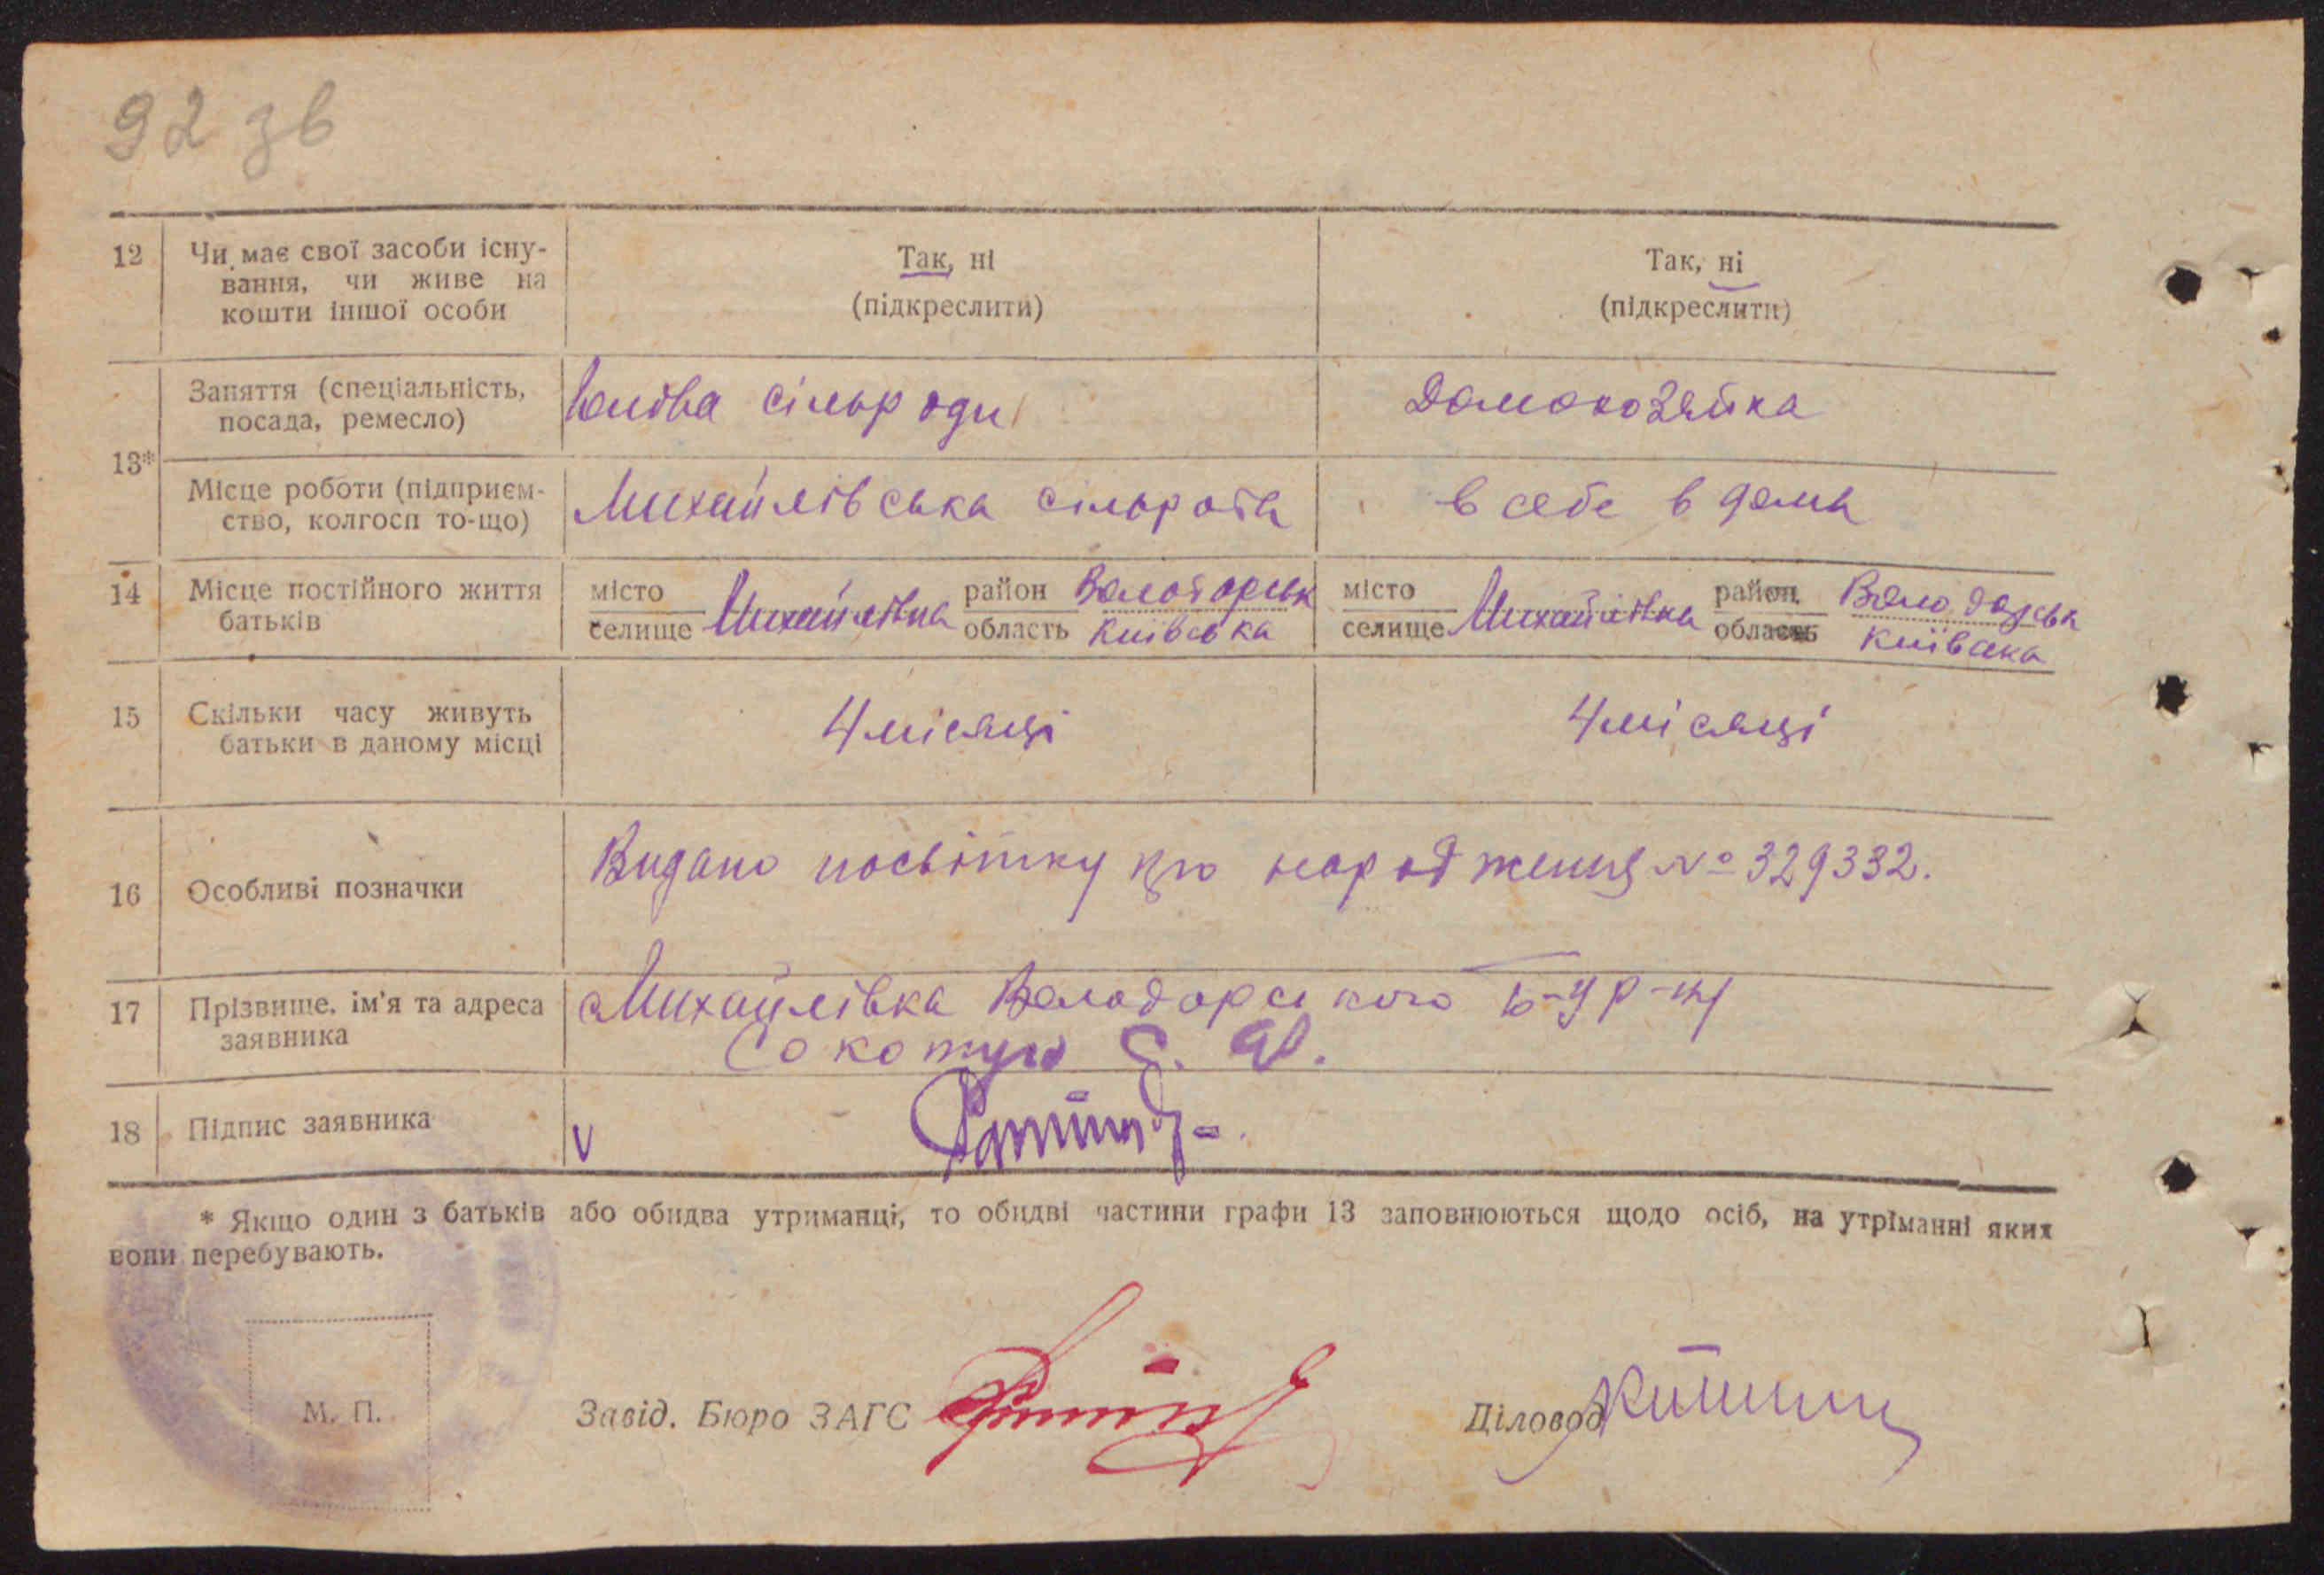 92 зв
12 Чи має свої засоби існу- Так, ні Так, ні
вання, чи живе на
кошти іншої особи (підкреслити) (підкреслити)
Заняття (спеціальність, сільр ади Домохозяйка
посада, ремесло)
13*
Місце роботи (підприєм- Михайлівська сільрада в себе в дома
ство, колгосп то-що)
14 Місце постійного життя місто Михайлівка район Володорськ місто Михайлівка район Володарськ
батьків селище область Київська селище область Київська
15 Скільки часу живуть 4 місяці 4 місяці
батьки в даному місці
16 Особливі позначки Видано посвітку про народження № 329332.
17 Прізвище, ім'я та адреса с Михайлівка Володорського р-ну
заявника Сокотун Є.
18 Підпис заявника V
* Якщо один з батьків або обидва утриманці, то обидві частини графи 13 заповнюються щодо осіб, на утріманні яких
вони перебувають.
М. П.
Завід. Бюро ЗАГС Діловод